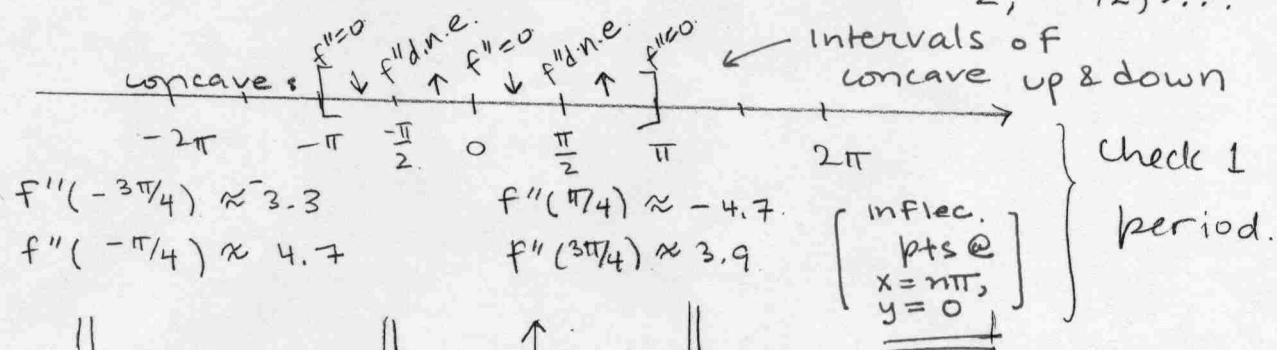 f''=0 f''d.n.e. f''=0 f''d.n.e f''=0
concave: [ ↓ ↑ ↓ ↑ ]
← Intervals of
concave up & down
-2π -π -π/2 0 π/2 π 2π
f''(-3π/4) ≈ -3.3
f''(-π/4) ≈ 4.7
f''(π/4) ≈ -4.7.
f''(3π/4) ≈ 3.9
[ inflec.
pts @
x = nπ,
y = 0 ]
} Check 1
period.